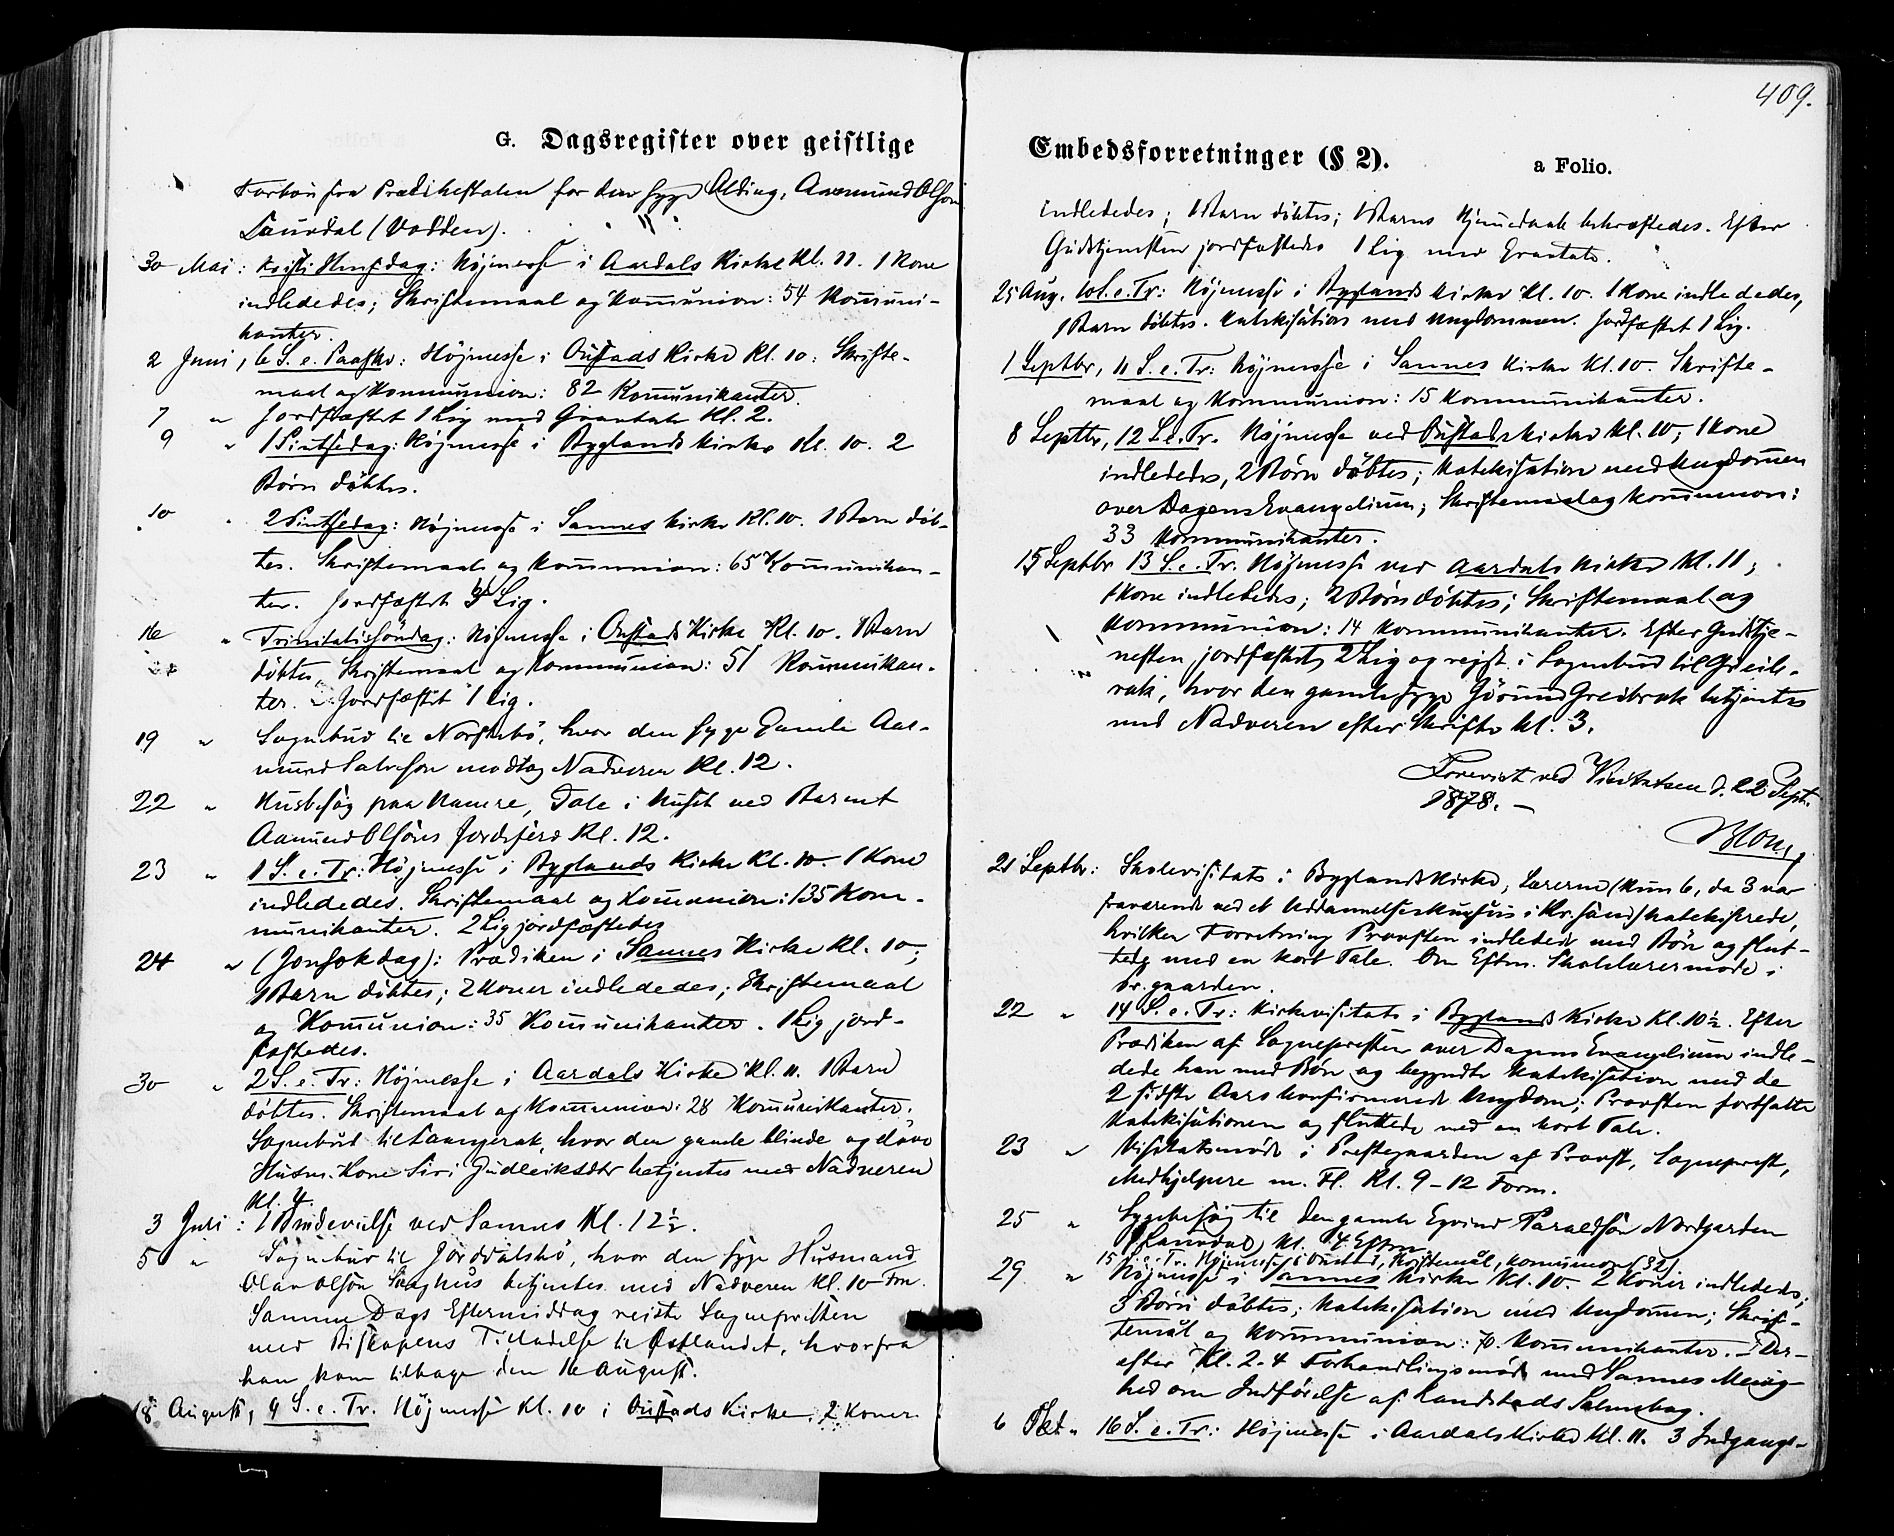 G. Dagsregister over geistlige
Forbøn fra Prædikestolen for den syge Olding, Aasmund Olsøn
Laurdal (Vodden).
30 Mai: Kristi Hmfsdag: Højmesse i Aardals Kirke Kl. 11. 1 Kone
indlededes; Skriftemaal og Kommunion: 54 Kommuni-
kanter.
2 Juni, 6 S. e. Paaske: Højmesse i Oustads Kirke Kl. 10: Skrifte-
maal og Kommunion: 82 Kommunikanter.
7 " Jordfæstet 1 Lig med Gravtale Kl. 2.
9 " 1 Pintsedag: Højmesse i Byglands Kirke Kl. 10. 2
Børn døbtes.
10 " 2 Pintsedag: Højmesse i Sannes Kirke Kl. 10. 1 Barn døb-
tes. Skriftemaal og Kommunion: 65 Kommunikan-
ter. Jordfæstet 3 Lig.
16 " Trinitatissøndag: Højmesse i Oustads Kirke Kl. 10. 1 Barn
døbtes, Skriftemaal og Kommunion: 51 Kommunikan-
ter. Jordfæstet 1 Lig.
19 " Sognebud til Norstebø, hvor den syge Gamle Aas-
mund Salveson modtog Nadveren Kl. 12.
22 " Husbesøg paa Hamre, Tale i Huset ved Barnet
Aamund Olsøns Jordferd Kl. 12.
23 " 1 S. e. Tr: Højmesse i Byglands Kirke Kl. 10 1 Kone
indlededes. Skriftemaal og Komunion: 135 Kom-
munikanter. 2 Lig jordfæstedes
24 " (Jonsokdag): Prædiken i Sannes Kirke Kl. 10;
1 Barn døbtes; 2 Koner indlededes; Skriftemaal
og Kommunion: 35 Kommunikanter. 1 Lig jord-
fæstedes.
30 " 2 S. e. Tr: Højmesse i Aardals Kirke Kl. 11. 1 Barn
døbtes. Skriftemaal og Kommunion: 28 Kommunikanter.
Sognebud til Langerak, hvor den gamle blinde og døve
Husm. Kone Siri Gudleiksdtr betjentes med Nadveren
Kl. 4.
3 Juli: 1 Brudevielse ved Sannes Kl. 12 1/2.
5 " Sognebud til Jorddalsbø, hvor den syge Husmand
Olav Olsøn betjentes med Nadveren Kl. 10 Fm.
Samme Dags Eftermiddag rejste Sognepresten
med Biskopens Tilladelse til Østlandet, hvorfra
han kom tilbage den 16 August.
18 August, 9 S. e. Tr. Højmesse Kl. 10 i Oustads Kirke. 2 Koner
409.
Embedsforretninger (§ 2).
a Folio.
indlededes; 1 Barn døbtes; 1 Barns Hjemedaab bekræftedes. Efter
Gudstjenesten jordfæstedes 1 Lig med Gravtale.
25 Aug. 10 S. e. Tr: Højmesse i Byglands Kirke Kl. 10. 1 Kone indlededes,
1 Barn døbtes. Katekisation med Ungdommen. Jordfæstet 1 Lig.
1 Septbr, 11 S. e. Tr: Højmesse i Sannes Kirke Kl. 10. Skrifte-
maal og Kommunion: 15 Kommunikanter.
8 Septbr, 12 S. e. Tr. Højmesse ved Oustads Kirke Kl. 10; 1 Kone
indlededes, 2 Børn døbtes; Katekisation med Ungdommen
over Dagens Evangelium; Skriftemaal og Kommunion:
33 Kommunikanter.
15 Septbr 13 S. e. Tr. Højmesse ved Aardals Kirke Kl. 11;
1 Kone indlededes; 2 Børn døbtes; Skriftemaal og
Kommunion: 14 Kommunikanter. Efter Gudstje-
nesten jordfæstet 2 Lig og rejst i Sognebud til Greib-
rok, hvor den gamle syge Jørund Greibrok betjentes
med Nadveren efter Skrifte Kl. 3.
Forevist ved Visitatsen d. 22 Sept.
1878. –
21 Septbr: Skolevisitats i Byglands Kirke; Lærerne (kun 6, da 3 var
fraværende ved et Uddannelseskursus i Kr.sand) katekiserede,
hvilken Forretning Provsten indledede med Bøn og slut-
tede med en kort Tale. Om Eftm. Skolelærermøde i
Pr.gaarden.
22 " 14 S. e. Tr: Kirkevisitats i Byglands Kirke Kl. 10 1/2. Efter
Prædiken af Sognepresten over Dagens Evangelium indle-
dede han med Bøn og begyndte Katekisation med de
2 sidste Aars konfirmerede Ungdom; Provsten fortsatte
Katekisationen og sluttede med en kort Tale.
23 " Visitatsmøde i Prestegaarden af Provst, Sogneprest,
Medhjelpere m. Fl. Kl. 9–12 Form.
25 " Sygebesøg til den gamle Eyvind Taraldsøn Nordgarden
Kl. 4 Eftm.
15 S. e. Tr. Højmesse i Oustad, Skriftemål, Komunion (32).
29 " Højmesse i Sannes Kirke Kl. 10. 2 Koner indlededes;
3 Børn døbtes; Katekisation med Ungdommen; Skrif-
temål og Kommunion: 70 Kommunikanter. – Der-
efter Kl. 2-4 Forhandlingsmøde med Sannes Menig-
hed om Indførelse af Landstads Salmebog.
6 Okt " 16 S. e. Tr.: Højmesse i Aardals Kirke Kl. 11. 3 Indgangs-